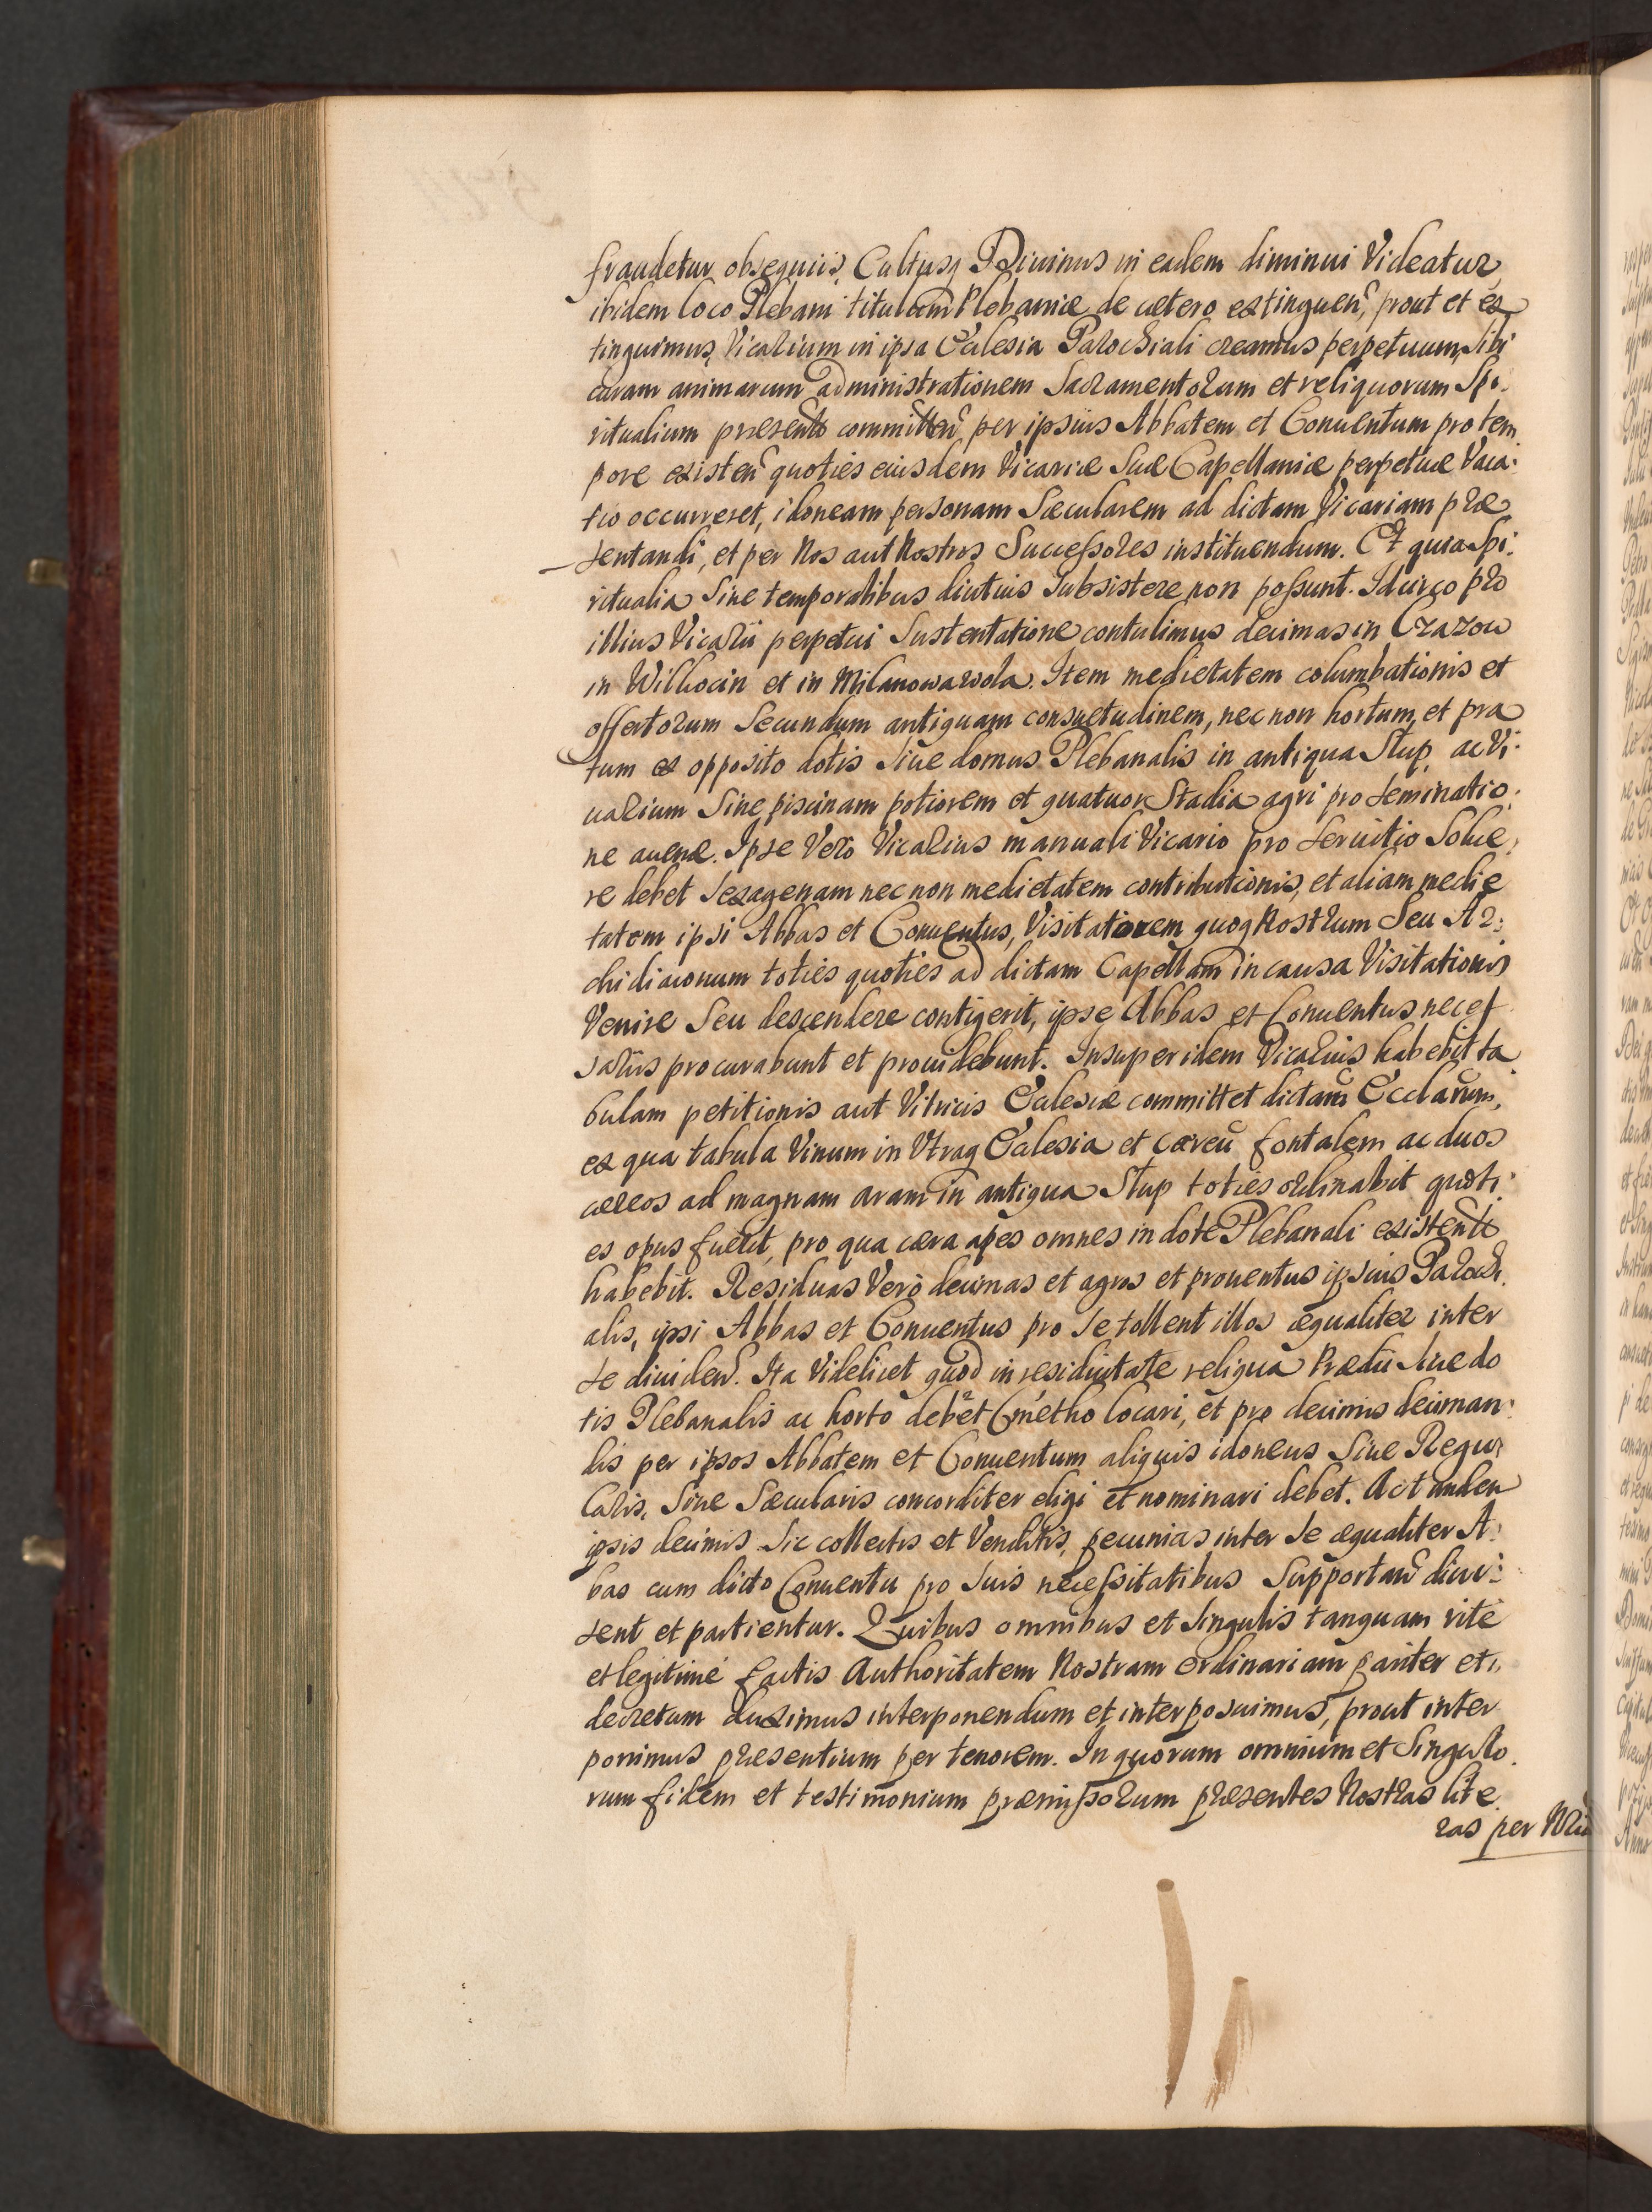 fraudetur obsequiis, Cultusq Diuinus in eadem diminui Videatur,
ibidem loco Plebani titulum Plebaniæ de cætero extinguen, prout et ex
tinguimus, Vicarium in ipsa Ecclesia Parochiali creamus perpetuum, sibi
curam animarum administrationem Sacramentorum et reliquorum Spi:
ritualium præsentib committen per ipsius Abbatem et Conuentum pro tem
pore existen quoties eiusdem Vicariæ Siue Capellaniæ perpetuæ Vaca:
tio occurreret, idoneam personam Sæcularem ad dictam Vicariam præ
sentandi, et per Nos aut Nostros Successores instituendum. Et quia Spi:
ritualia Sine temporalibus diutius Subsistere non possunt. Idcirco pro
illius Vicarii perpetui Sustentatione contulimus decimas in Czazow
in Wilkocin et in Milanowawola. Item medietatem columbationis et
offertorum Secundum antiquam consuetudinem, nec non hortum, et pra
tum ex opposito dotis Siue domus Plebanalis in antiqua Slup, ac Vi:
uarium Siue piscinam potiorem et quatuor Stadia agri pro seminatio:
ne auenæ. Ipse Vero Vicarius manuali Vicario pro seruitio Solue,
re debet sexagenam nec non medietatem contributionis, et aliam medie
tatem ipsi Abbas et Conuentus, Visitatorem quoq Nostrum Seu Ar:
chidiaconum toties quoties ad dictam Capellam in causa Visitationis
Venire Seu descendere contigerit, ipse Abbas et Conuentus neces
sariis procurabunt et prouidebunt. Insuper idem Vicarius habebit ta
bulam petitionis aut Vitricis Ecclesiæ committet dictarū Ecclarum,
ex qua tabula Vinum in Vtraq Ecclesia et cæreū fontalem ac duos
cæreos ad magnam aram in antiqua Slup toties ordinabit quoti:
es opus fuerit, pro qua cæra apes omnes in dote Plebanali existentes
habebit. Residuas Verò decimas et agros et prouentus ipsius Parochi.
alis, ipsi Abbas et Conuentus pro se tollent illos æqualiter inter
se diuiden. Ita Videlicet quòd in residuitate reliqua Prædii Siue do
tis Plebanalis ac horto debet Cmetho locari, et pro decimis deciman:
dis per ipsos Abbatem et Conuentum aliquis idoneus Siue Regu:
laris, Siue Sæcularis concorditer eligi et nominari debet. Ac tanden
ipsis decimis Sic collectis et Venditis, pecunias inter se æqualiter A:
bas cum dicto Conuentu pro Suis necessitatibus Supportan diui:
dent et partientur. Quibus omnibus et Singulis tanquam ritè
et legitimè factis Authoritatem Nostram ordinariam pariter et,
decretum duximus interponendum et interposuimus, prout inter
ponimus præsentium per tenorem. In quorum omnium et Singulo.
rum fidem et testimonium præmissorum præsentes Nostras lite
ras per